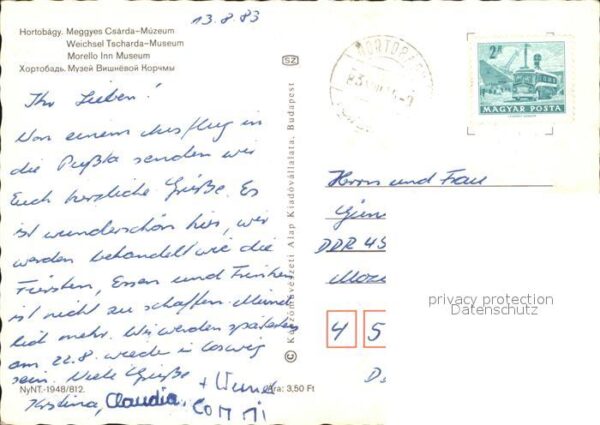 13.8.83
Hortobágy. Meggyes Csárda-Múzeum
Weichsel Tscharda-Museum
Morello Inn Museum
Хортобадь. Музей Вишнёвой Корчмы
SZ
HORTOBÁGY
2 Ft
MAGYAR POSTA
Ihr Lieben!
Von einem Ausflug in
die Pußta senden wir
Euch herzliche Grüße. Es
ist wunderschön hier, wir
werden behandelt wie die
Fürsten, Essen und Trinken
ist nicht zu schaffen.
mehr. Wir werden spätestens
am 22.8. wieder in Coswig
sein. Viele Grüße
Kristina, Claudia, +
© Képzőművészeti Alap Kiadóvállalata, Budapest
Herrn und Frau
Gün
DDR 45
privacy protection
Datenschutz
4 5
D
NyNT.-1948/812.
Ára: 3,50 Ft